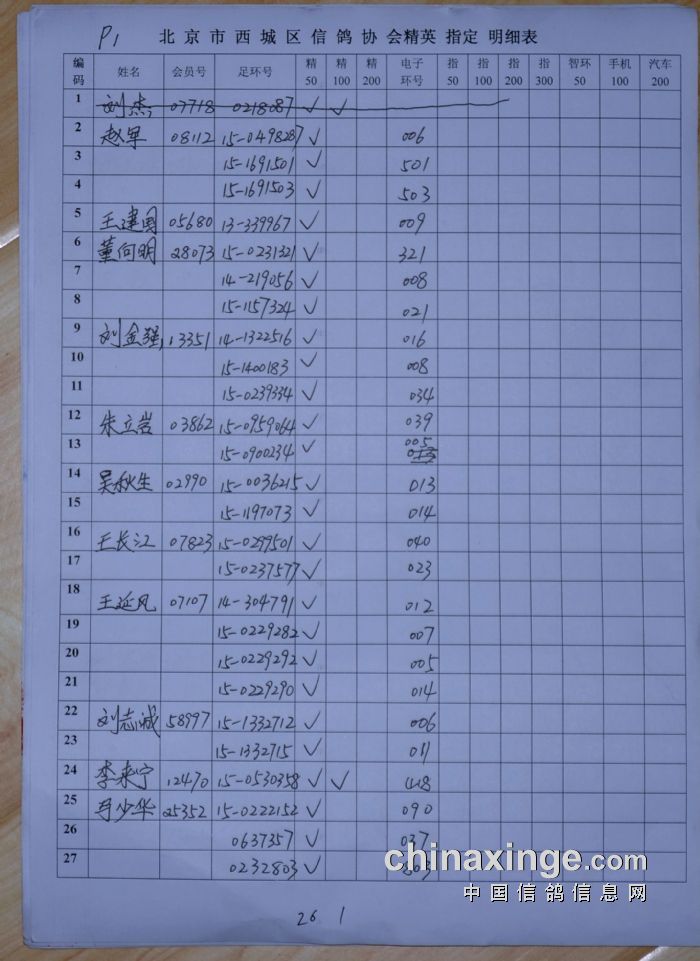 P1 北京市西城区信鸽协会精英指定 明细表
编码 姓名 会员号 足环号 精50 精100 精200 电子环号 指50 指100 指200 指300 智环50 手机100 汽车200
1 刘杰 07718 0218087 ✓ ✓
2 赵军 08112 15-0498287 ✓ 006
3 15-1691501 ✓ 501
4 15-1691503 ✓ 503
5 王建国 05680 13-339967 ✓ 009
6 董向明 28073 15-0231321 ✓ 321
7 14-219056 ✓ 008
8 15-1157324 ✓ 021
9 刘金强 13351 14-1322516 ✓ 016
10 15-1400183 ✓ 008
11 15-0239334 ✓ 034
12 朱立岩 03862 15-0959064 ✓ 039
13 15-0900234 ✓ 005
14 吴秋生 02990 15-0036215 ✓ 013
15 15-1197073 ✓ 014
16 王长江 07823 15-0299501 ✓ 040
17 15-0237577 ✓ 023
18 王延风 07107 14-304791 ✓ 012
19 15-0229282 ✓ 007
20 15-0229292 ✓ 005
21 15-0229290 ✓ 014
22 刘志诚 58997 15-1332712 ✓ 006
23 15-1332715 ✓ 011
24 李来宁 12470 15-0530358 ✓ ✓ 418
25 少华 25352 15-0222152 ✓ 090
26 0637357 ✓ 037
27 0232803 ✓
chinaxinge.com
中国信鸽信息网
26 1